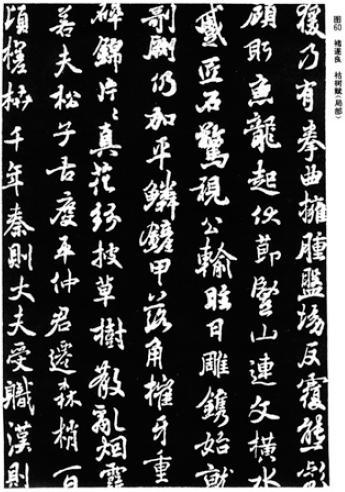 图60 褚遂良 枯树赋(局部)
復乃有拳曲擁腫盤坳反覆熊彪
顧盼魚龍起伏節豎山連文橫水
蹙匠石驚視公輸眩目雕鐫始就
剞劂仍加平鱗鏟甲落角摧牙重
碎錦片〻真花紛披草樹散亂烟霞
若夫松子古度平仲君遷森梢百
頃槎枿千年秦則大夫受職漢則